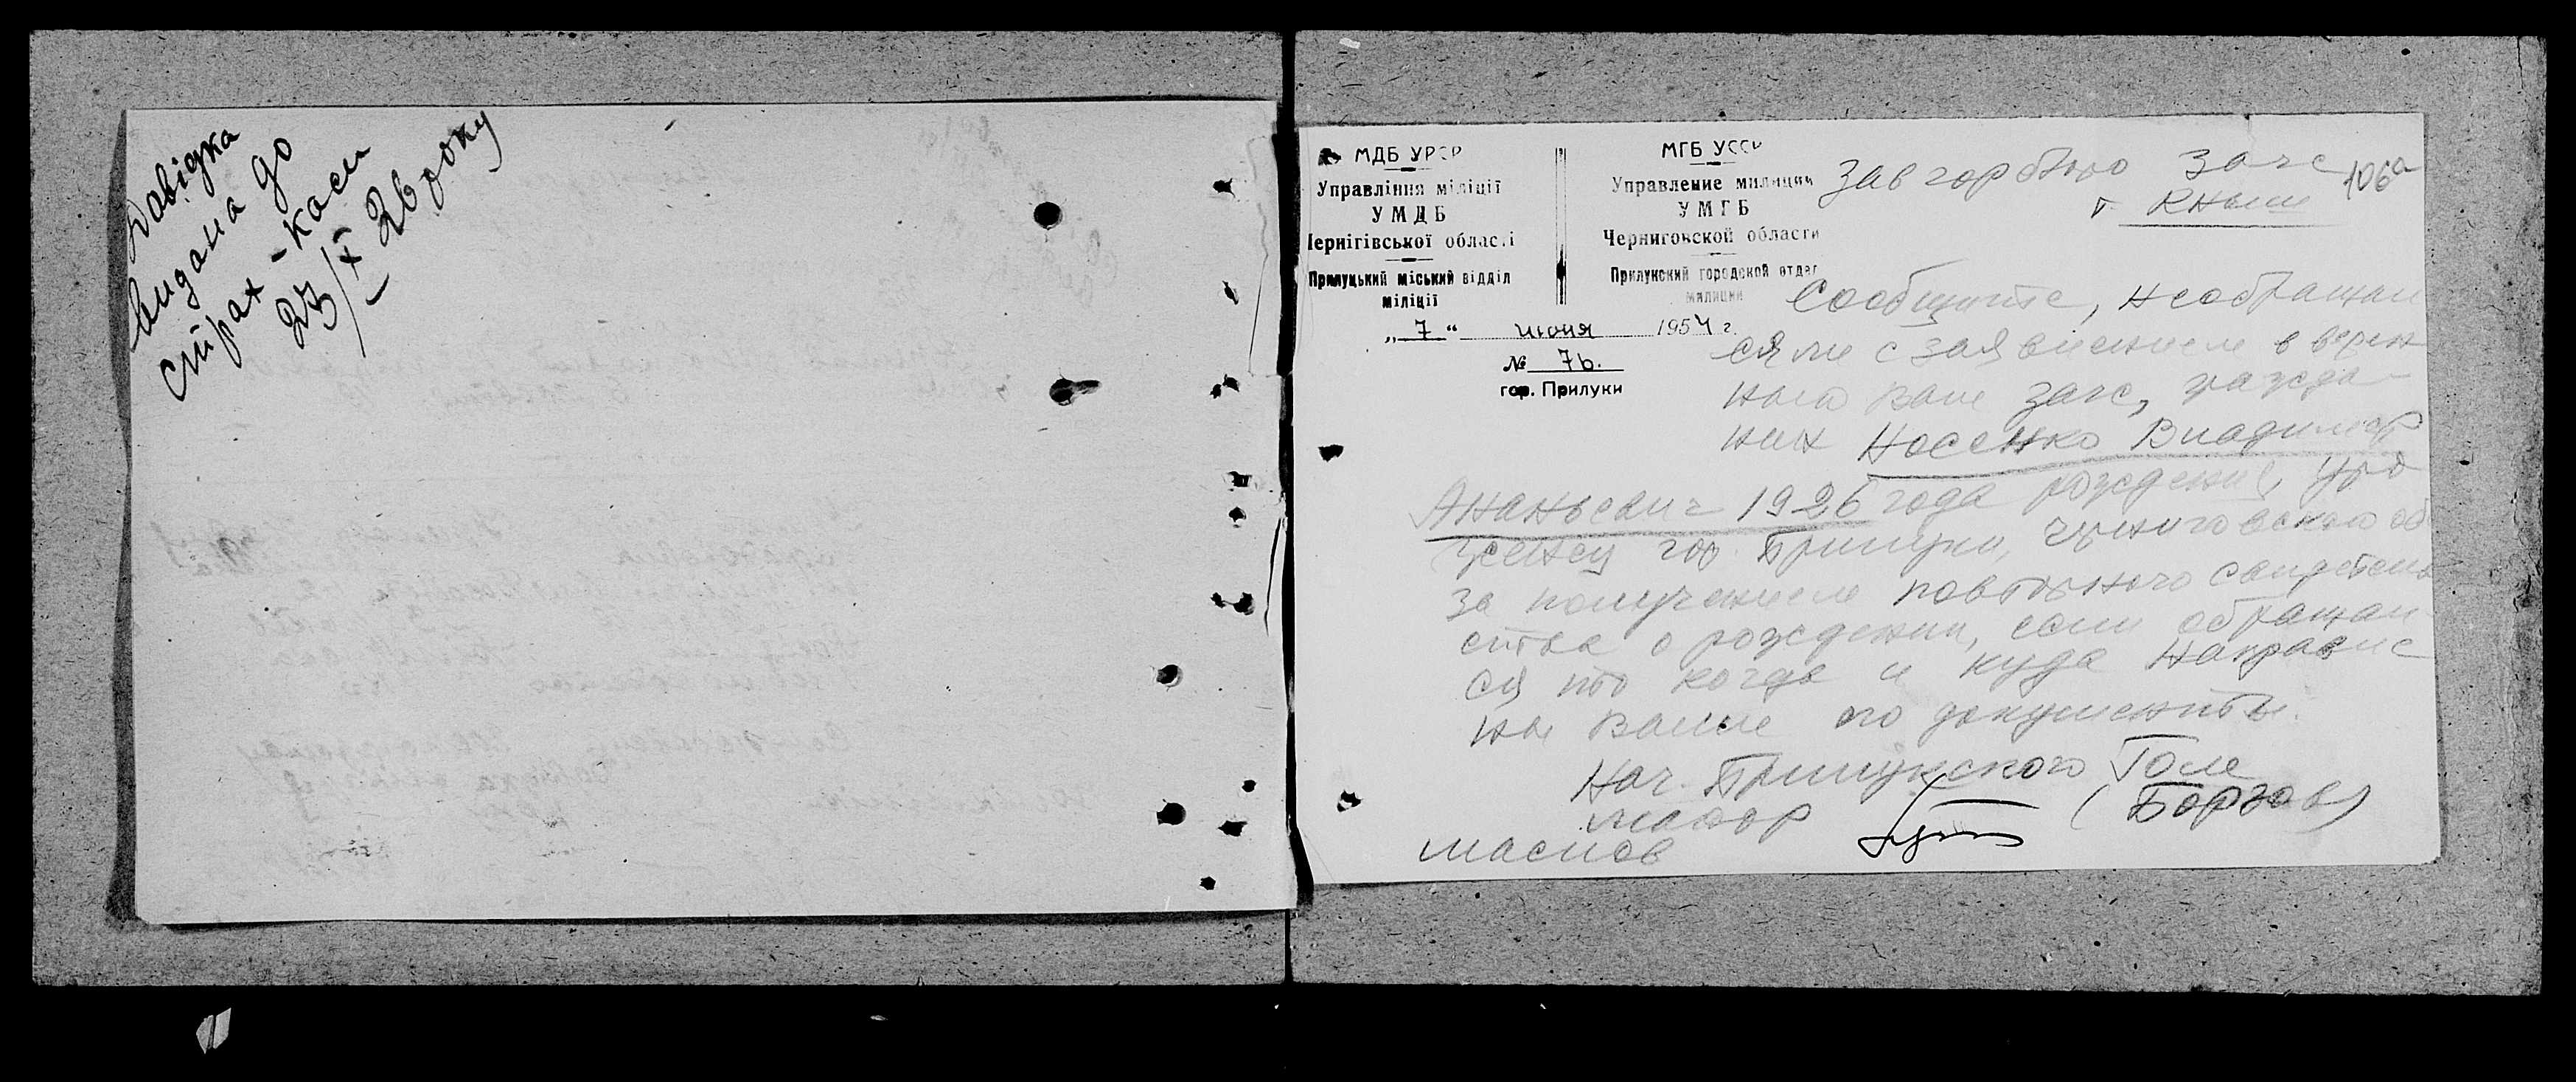 Довідка
видана до
страх-каси
23/IX 26 року
МДБ УРСР
Управління міліції
УМДБ
Чернігівської області
Прилуцький міський відділ
міліції
МГБ УССР
Управление милиции
УМГБ
Черниговской области
Прилукский городской отдел
милиции
„7“ июня 1954 г.
№ 76.
гор. Прилуки
Зав горбюро Загс
г.
106а
Сообщите, не обращал
ся ли с заявлением в верен
ного Вам загс, гражда-
нин Носенко Владимир
Ананьевич 1926 года рождения, уро
женец гор. Прилуки, Черниговской об
за получением повторного свидетель
ства о рождении, если обращал
ся то когда и куда направле
ны Вами его документы.
Нач. Прилукского Гом
майор (Борзов)